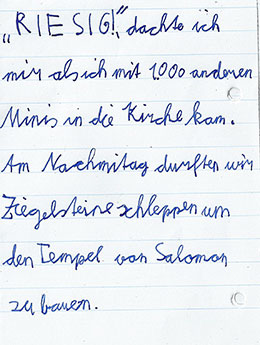 „RIESIG!“, dachte ich
mir als ich mit 1000 anderen
Minis in die Kirche kam.
Am Nachmitag durften wir
Ziegelsteine schleppen um
den Tempel von Salomon
zu bauen.